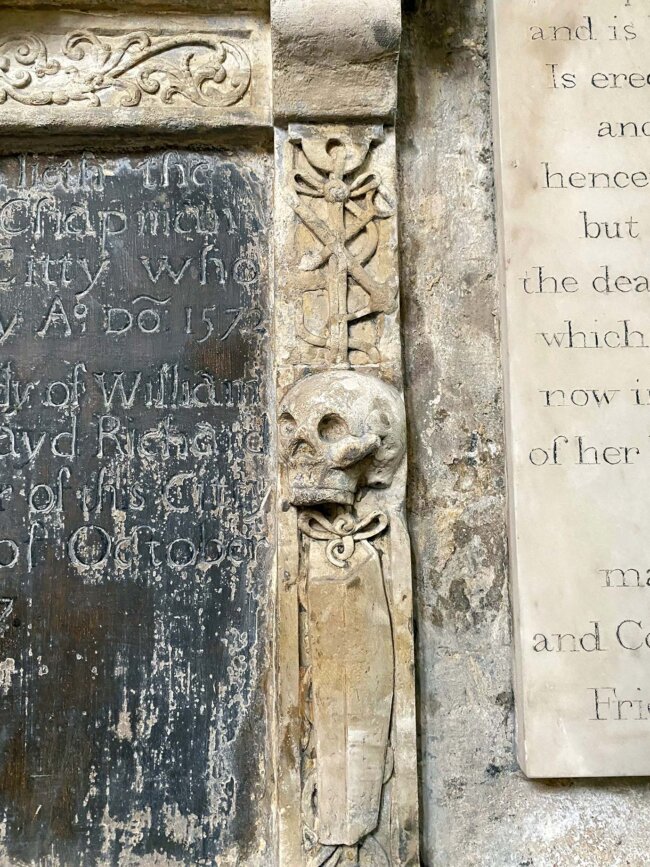 lieth the
Chapman
Citty who
y Aº Dõ 1572
dy of William
ayd Richard
r of this Citty
of October
7
and is
Is erec
and
hence
but
the dea
which
now i
of her
ma
and Co
Frie